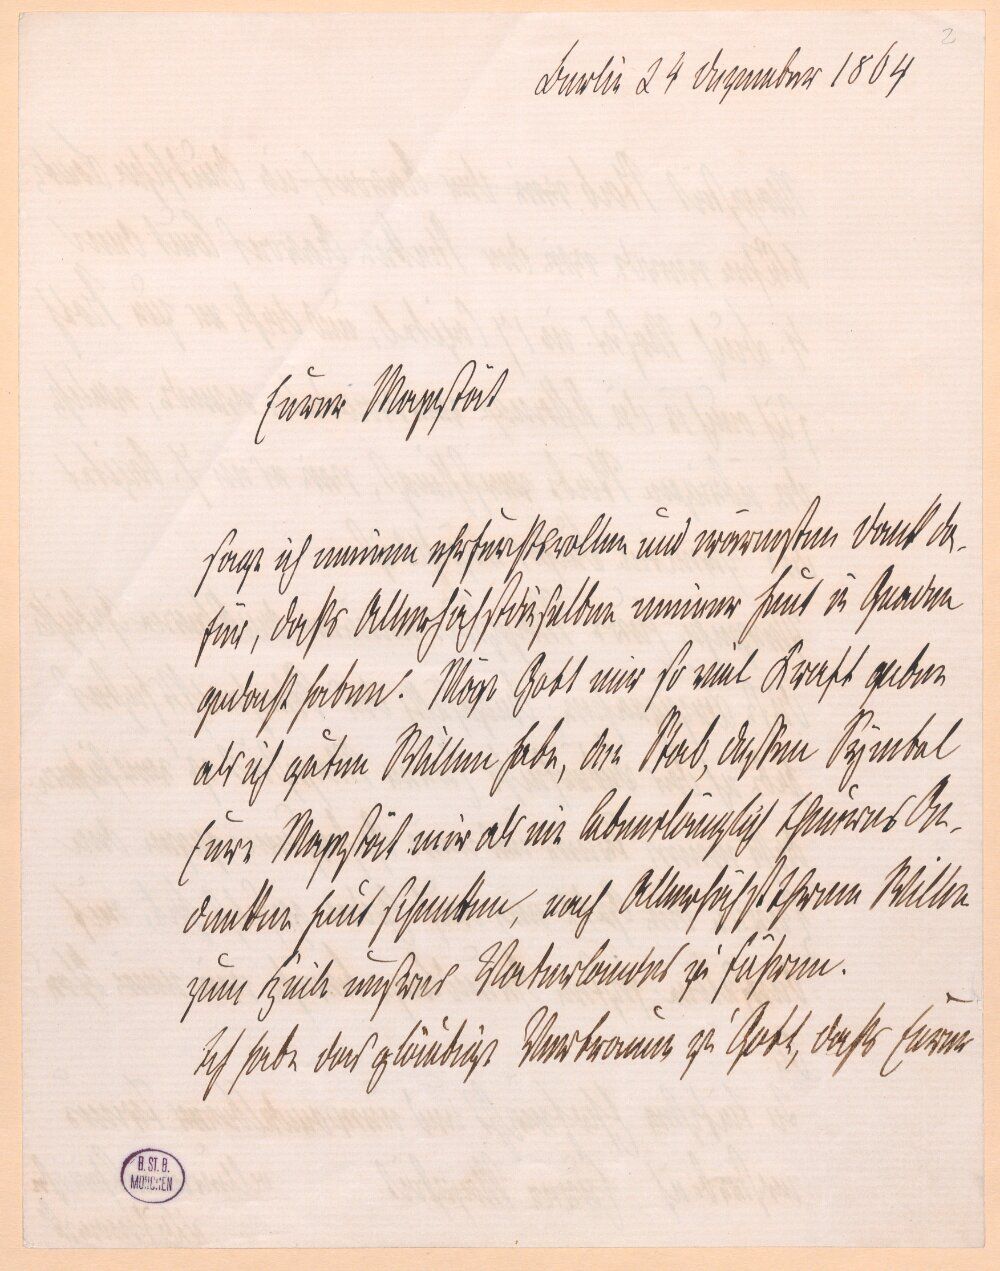 2
Berlin 24 Dezember 1864
Eurer Majestät
sage ich meinen ehrfurchtsvollen und wärmsten Dank da-
für, daß Allerhöchstdieselben meiner heut in Gnaden
gedacht haben. Möge Gott mir so viel Kraft geben
als ich guten Willen habe, den Stab, dessen Symbol
Eure Majestät mir als ein lebenslänglich theueres An-
denken heut schenken, nach Allerhöchst Ihrem Willen
zum Heile unsres Vaterlandes zu führen.
Ich habe das gläubige Vertrauen zu Gott, daß Eurer
B. ST. B.
MÜNCHEN